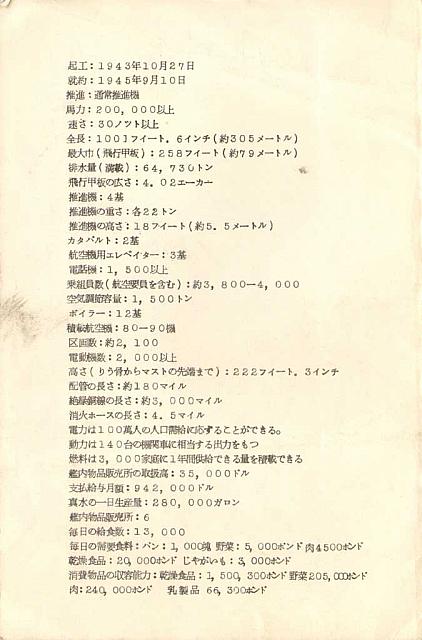 起工：１９４３年１０月２７日
就約：１９４５年９月１０日
推進：通常推進機
馬力：２００，０００以上
速さ：３０ノット以上
全長：１００１フイート．６インチ（約３０５メートル）
最大巾（飛行甲板）：２５８フイート（約７９メートル）
排水量（満載）：６４，７３０トン
飛行甲板の広さ：４．０２エーカー
推進機：４基
推進機の重さ：各２２トン
推進機の高さ：１８フイート（約５．５メートル）
カタパルト：２基
航空機用エレベイター：３基
電話機：１，５００以上
乗組員数（航空要員を含む）：約３，８００ー４，０００
空気調節容量：１，５００トン
ボイラー：１２基
積載航空機：８０ー９０機
区画数：約２，１００
電動機数：２，０００以上
高さ（りう骨からマストの先端まで）：２２２フイート．３インチ
配管の長さ：約１８０マイル
絶縁銅線の長さ：約３，０００マイル
消火ホースの長さ：４．５マイル
電力は１００萬人の人口需給に応ずることができる。
動力は１４０台の機関車に相当する出力をもつ
燃料は３，０００家庭に１年間供給できる量を積載できる
艦内物品販売所の取扱高：３５，０００ドル
支払給与月額：９４２，０００ドル
真水の一日生産量：２８０，０００ガロン
艦内物品販売所：６
毎日の給食数：１３，０００
毎日の需要食料：パン：１，０００塊 野菜：５，０００ポンド 肉４５００ポンド
乾燥食品：２０，０００ポンド じやがいも：３，０００ポンド
消費物品の収容能力：乾燥食品：１，５００，３００ポンド 野菜２０５，０００ポンド
肉：２４０，０００ポンド 乳製品 ６６，３００ポンド